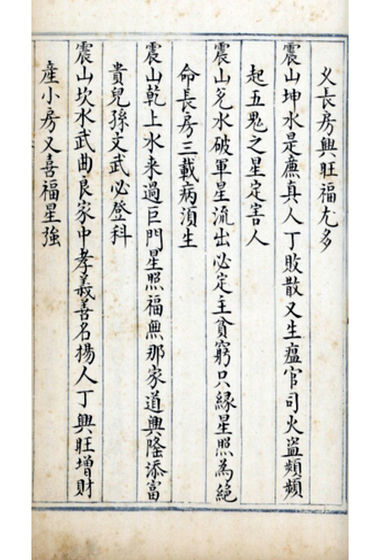 义長房興旺福尤多
震山坤水是亷真人丁敗散又生瘟官司火盗頻頻
起五鬼之星定害人
震山兊水破軍星流出必定主貧窮只緣星照為絕
命長房三載病湏生
震山乾上水来過巨門星照福無那家道興隆添富
貴兒孫文武必登科
震山坎水武曲良家中孝義善名揚人丁興旺增財
產小房又喜福星強